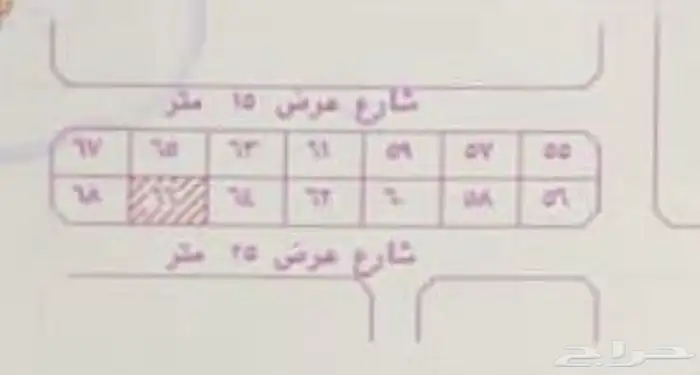 شارع عرض ١٥ متر
٥٥ ٥٧ ٥٩ ٦١ ٦٣ ٦٥ ٦٧
٥٦ ٥٨ ٦٠ ٦٢ ٦٤ ٦٦ ٦٨
شارع عرض ٢٥ متر
حراج